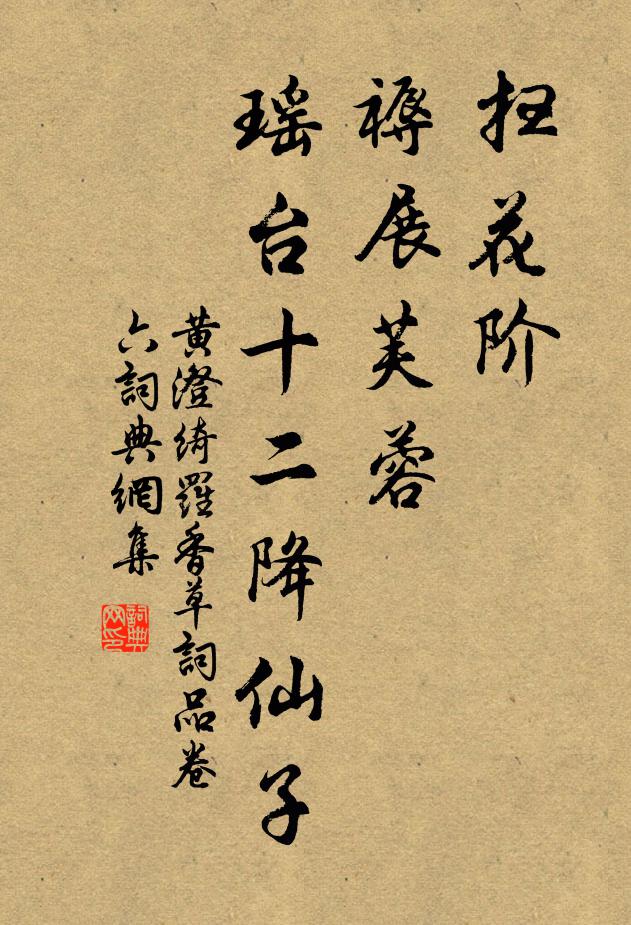 扫花阶
褥展芙蓉
瑶台十二降仙子
黄澄绮羅香草詞品卷
六詞典網集
詞典网印